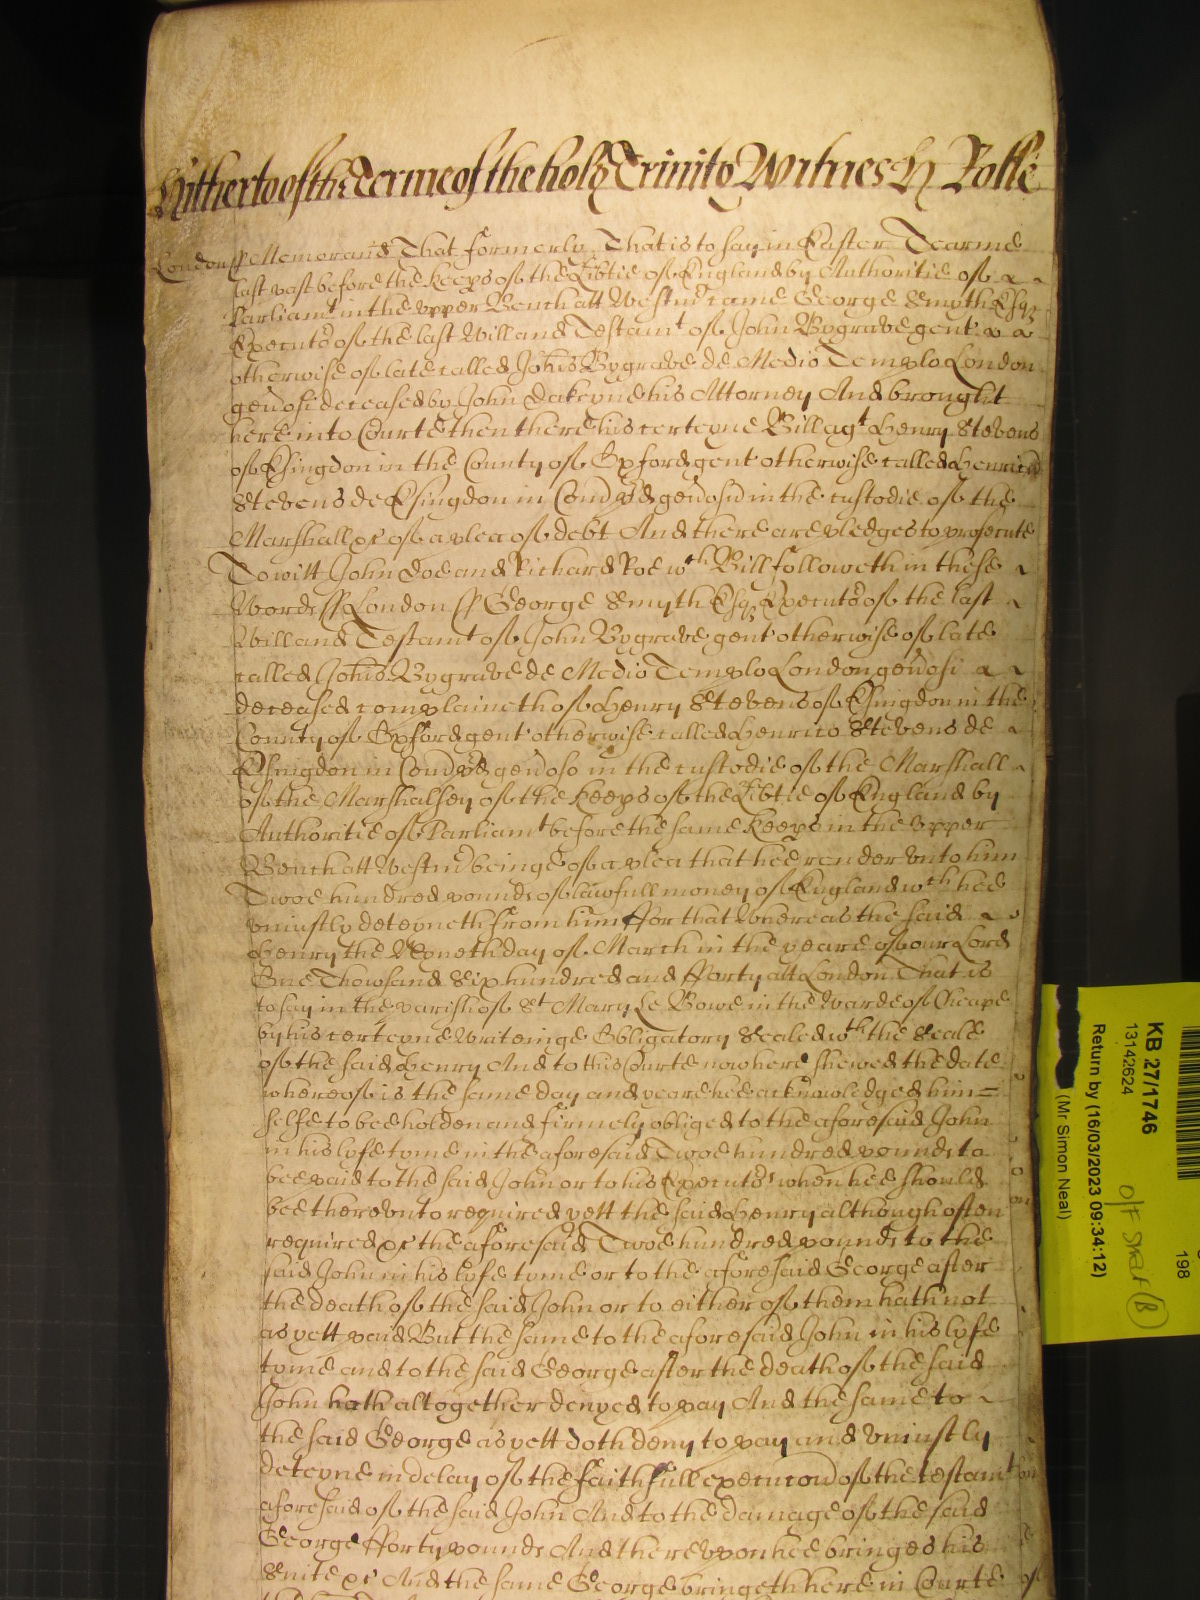 Hitherto of the Terme of the holy Trinity Witnes H Rolle
London ss Memorand That formerly That is to say in Easter Tearme
last past before the Keeps of the Libtie of England by Authoritie of
Parliamt in the upper Bench att Westmr came George Smyth Esqr
Executor of the last Will and Testamt of John Bygrave gent
otherwise of late called Johis Bygrave de Medio Templo London
genosi deceased by John Dakeyne his Attorney And brought
here into Courte then there his certeyne Bill agt Henry Stevens
of Ewsingdon in the County of Oxford gent otherwise called Henrico
Stevens de in Com genoso in the custodie of the
Marshall &c of a plea of debt And there are pledges to prosecute
To witt John Doe and Richard Roe wch Bill followeth in these
Words ss London ss George Smyth Esqr Executor of the last
Will and Testamt of John Bygrave gent otherwise of late
called Johis Bygrave de Medio Templo London genosi
deceased complaineth of Henry Stevens of in the
County of Oxford gent otherwise called Henrico Stevens de
in Com genoso in the custodie of the Marshall
of the Marshalsey of the Keeps of the Libtie of England by
Authoritie of Parliamt before the same Keeps in the Upper
Bench att Westmr beinge of a plea that hee render unto him
Twoe hundred pounds of lawfull money of England wch hee
uniustly deteyneth from him ffor that Whereas the said
Henry the Nyneth day of March in the yeare of our Lord
One Thowsand Six hundred and fforty att London That is
to say in the parish of St Mary Le Bowe in the Warde of Cheape
by his certeyne Writeinge Obligatory Sealed wth the Seale
of the said Henry And to this Courte now here shewed the date
whereof is the same day and yeare hee acknowledged him=
selfe to be holden and firmely obliged to the aforesaid John
in his lyfe tyme in the aforesaid Twoe hundred pounds to
bee paid to the said John or to his Executors when hee should
bee thereunto required yett the said Henry although often
required &c the aforesaid Twoe hundred pounds to the
said John in his lyfe tyme or to the aforesaid George after
the death of the said John or to either of them hath not
as yett paid But the same to the aforesaid John in his lyfe
tyme and to the said George after the death of the said
John hath altogether denyed to pay And the same to
the said George as yett doth deny to pay and uniustly
deteyne in delay of the faithfull execucon of the testamt
aforesaid of the said John And to the damage of the said
George fforty pounds And thereupon hee bringes his
Suite &c And the same George bringeth here in Courte
KB 27/1746
13142624
Return by (16/03/2023 09:34:12)
(Mr Simon Neal)
198